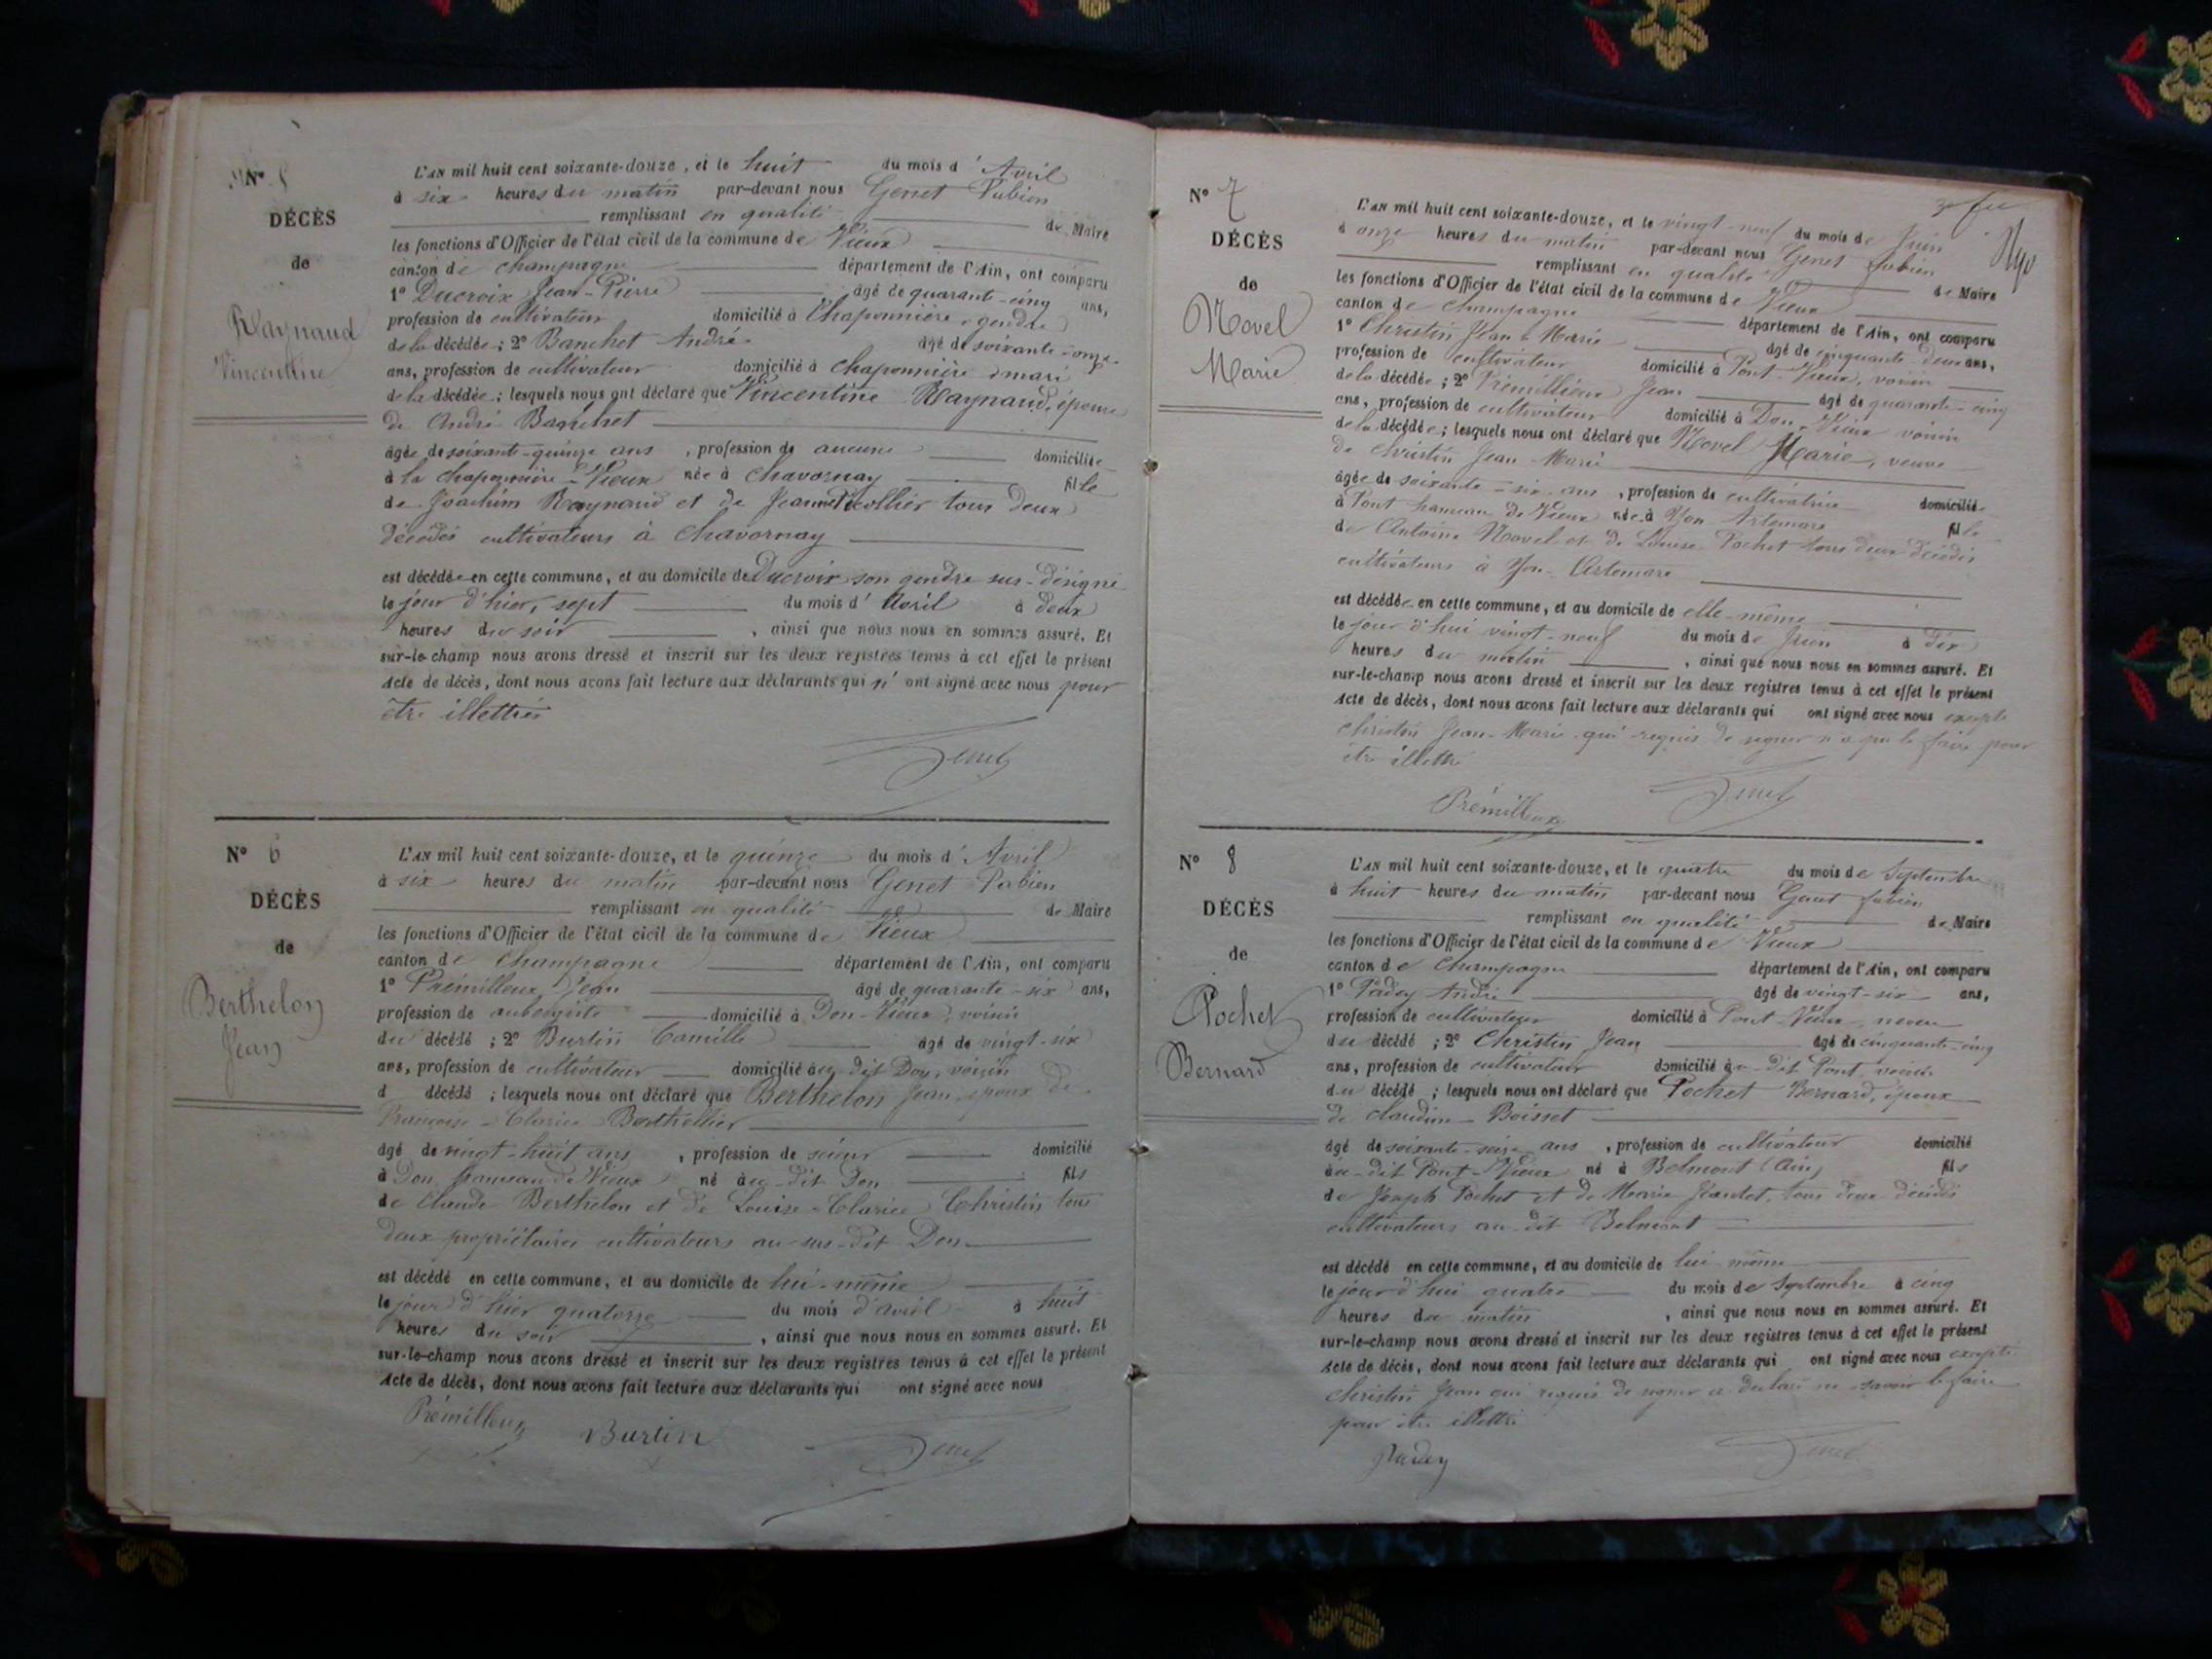 N° 5
DÉCÈS
de
Raynaud
Vincentine
L'AN mil huit cent soixante-douze, et le huit du mois d'Avril
à six heures du matin par-devant nous Genet Fabien
remplissant en qualité de Maire
les fonctions d'Officier de l'état civil de la commune de Vieux
canton de Champagne département de l'Ain, ont comparu
1° Ducroix Jean-Pierre âgé de quarante-cinq ans,
profession de cultivateur domicilié à Chaponnière, gendre
de la décédée; 2° Banchet André âgé de soixante-onze
ans, profession de cultivateur domicilié à Chaponnière, mari
de la décédée; lesquels nous ont déclaré que Vincentine Raynaud, épouse
de André Banchet
âgée de soixante-quinze ans, profession de aucune domiciliée
à la Chaponnière-Vieux née à Chavornay fille
de Joachim Raynaud et de Jeanne tous deux
décédés cultivateurs à Chavornay
est décédée en cette commune, et au domicile de Ducroix son gendre sus-désigné
le jour d'hier, sept du mois d'Avril à deux
heures du soir, ainsi que nous nous en sommes assuré. Et
sur-le-champ nous avons dressé et inscrit sur les deux registres tenus à cet effet le présent
Acte de décès, dont nous avons fait lecture aux déclarants qui n'ont signé avec nous pour
être illettrés
Genet
N° 6
DÉCÈS
de
Berthelon
Jean
L'AN mil huit cent soixante-douze, et le quinze du mois d'Avril
à six heures du matin par-devant nous Genet Fabien
remplissant en qualité de Maire
les fonctions d'Officier de l'état civil de la commune de Vieux
canton de Champagne département de l'Ain, ont comparu
1° Prémilleux Jean âgé de quarante-six ans,
profession de aubergiste domicilié à Don-Vieux, voisin
du décédé; 2° Burtin Camille âgé de vingt-six
ans, profession de cultivateur domicilié au-dit Don, voisin
d décédé; lesquels nous ont déclaré que Berthelon Jean, époux de
Françoise-Clarice Berthellier
âgé de vingt-huit ans, profession de domicilié
à Don hameau de Vieux né au-dit Don fils
de Claude Berthelon et de Louise-Clarice Christin tous
deux propriétaires cultivateurs au sus-dit Don
est décédé en cette commune, et au domicile de lui-même
le jour d'hier quatorze du mois d'avril à huit
heures du soir, ainsi que nous nous en sommes assuré. Et
sur-le-champ nous avons dressé et inscrit sur les deux registres tenus à cet effet le présent
Acte de décès, dont nous avons fait lecture aux déclarants qui ont signé avec nous
Prémilleux Burtin Genet
N° 7
DÉCÈS
de
Novel
Marie
L'AN mil huit cent soixante-douze, et le vingt-neuf du mois de Juin
à onze heures du matin par-devant nous Genet Fabien
remplissant en qualité de Maire
les fonctions d'Officier de l'état civil de la commune de Vieux
canton de Champagne département de l'Ain, ont comparu
1° Christin Jean-Marie âgé de cinquante deux ans,
profession de cultivateur domicilié à Pont-Vieux, voisin
de la décédée; 2° Prémilleux Jean âgé de quarante-cinq
ans, profession de cultivateur domicilié à Don-Vieux voisin
de la décédée; lesquels nous ont déclaré que Novel Marie, veuve
de Christin Jean-Marie
âgée de soixante-six ans, profession de cultivatrice domiciliée
à Pont hameau de Vieux née à Yon Artemare fille
de Antoine Novel et de Louise Pochet tous deux décédés
cultivateurs à Yon-Artemare
est décédée en cette commune, et au domicile de elle-même
le jour d'hui vingt-neuf du mois de Juin à dix
heures du matin, ainsi que nous nous en sommes assuré. Et
sur-le-champ nous avons dressé et inscrit sur les deux registres tenus à cet effet le présent
Acte de décès, dont nous avons fait lecture aux déclarants qui ont signé avec nous excepté
Christin Jean-Marie qui requis de signer n'a pu le faire pour
être illettré
Prémilleux Genet
N° 8
DÉCÈS
de
Pochet
Bernard
L'AN mil huit cent soixante-douze, et le quatre du mois de Septembre
à huit heures du matin par-devant nous Genet Fabien
remplissant en qualité de Maire
les fonctions d'Officier de l'état civil de la commune de Vieux
canton de Champagne département de l'Ain, ont comparu
1° Paday André âgé de vingt-six ans,
profession de cultivateur domicilié à Pont-Vieux, neveu
du décédé; 2° Christin Jean âgé de cinquante-cinq
ans, profession de cultivateur domicilié au-dit Pont, voisin
du décédé; lesquels nous ont déclaré que Pochet Bernard, époux
de Claudine Boisset
âgé de soixante-seize ans, profession de cultivateur domicilié
au-dit Pont-Vieux né à Belmont (Ain) fils
de Joseph Pochet et de Marie tous deux décédés
cultivateurs au-dit Belmont
est décédé en cette commune, et au domicile de lui même
le jour d'hui quatre du mois de Septembre à cinq
heures du matin, ainsi que nous nous en sommes assuré. Et
sur-le-champ nous avons dressé et inscrit sur les deux registres tenus à cet effet le présent
Acte de décès, dont nous avons fait lecture aux déclarants qui ont signé avec nous excepté
Christin Jean qui requis de signer a déclaré ne savoir le faire
pour être illettré
Paday Genet